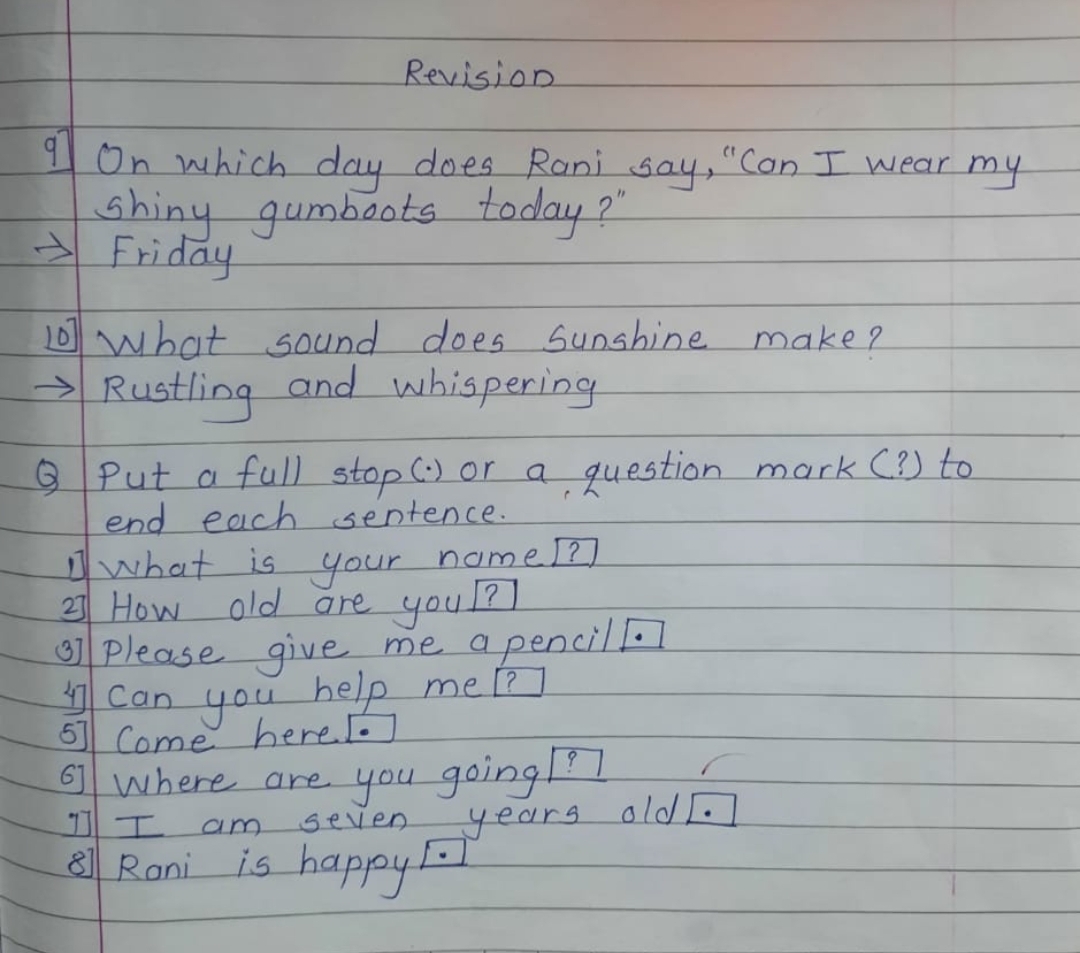 Revision
9] On which day does Rani say, "Can I wear my
shiny gumboots today?"
→ Friday
10] What sound does Sunshine make?
→ Rustling and whispering
Q Put a full stop (.) or a question mark (?) to
end each sentence.
1] What is your name [?]
2] How old are you [?]
3] Please give me a pencil [.]
4] Can you help me [?]
5] Come here [.]
6] Where are you going [?]
7] I am seven years old [.]
8] Rani is happy [.]